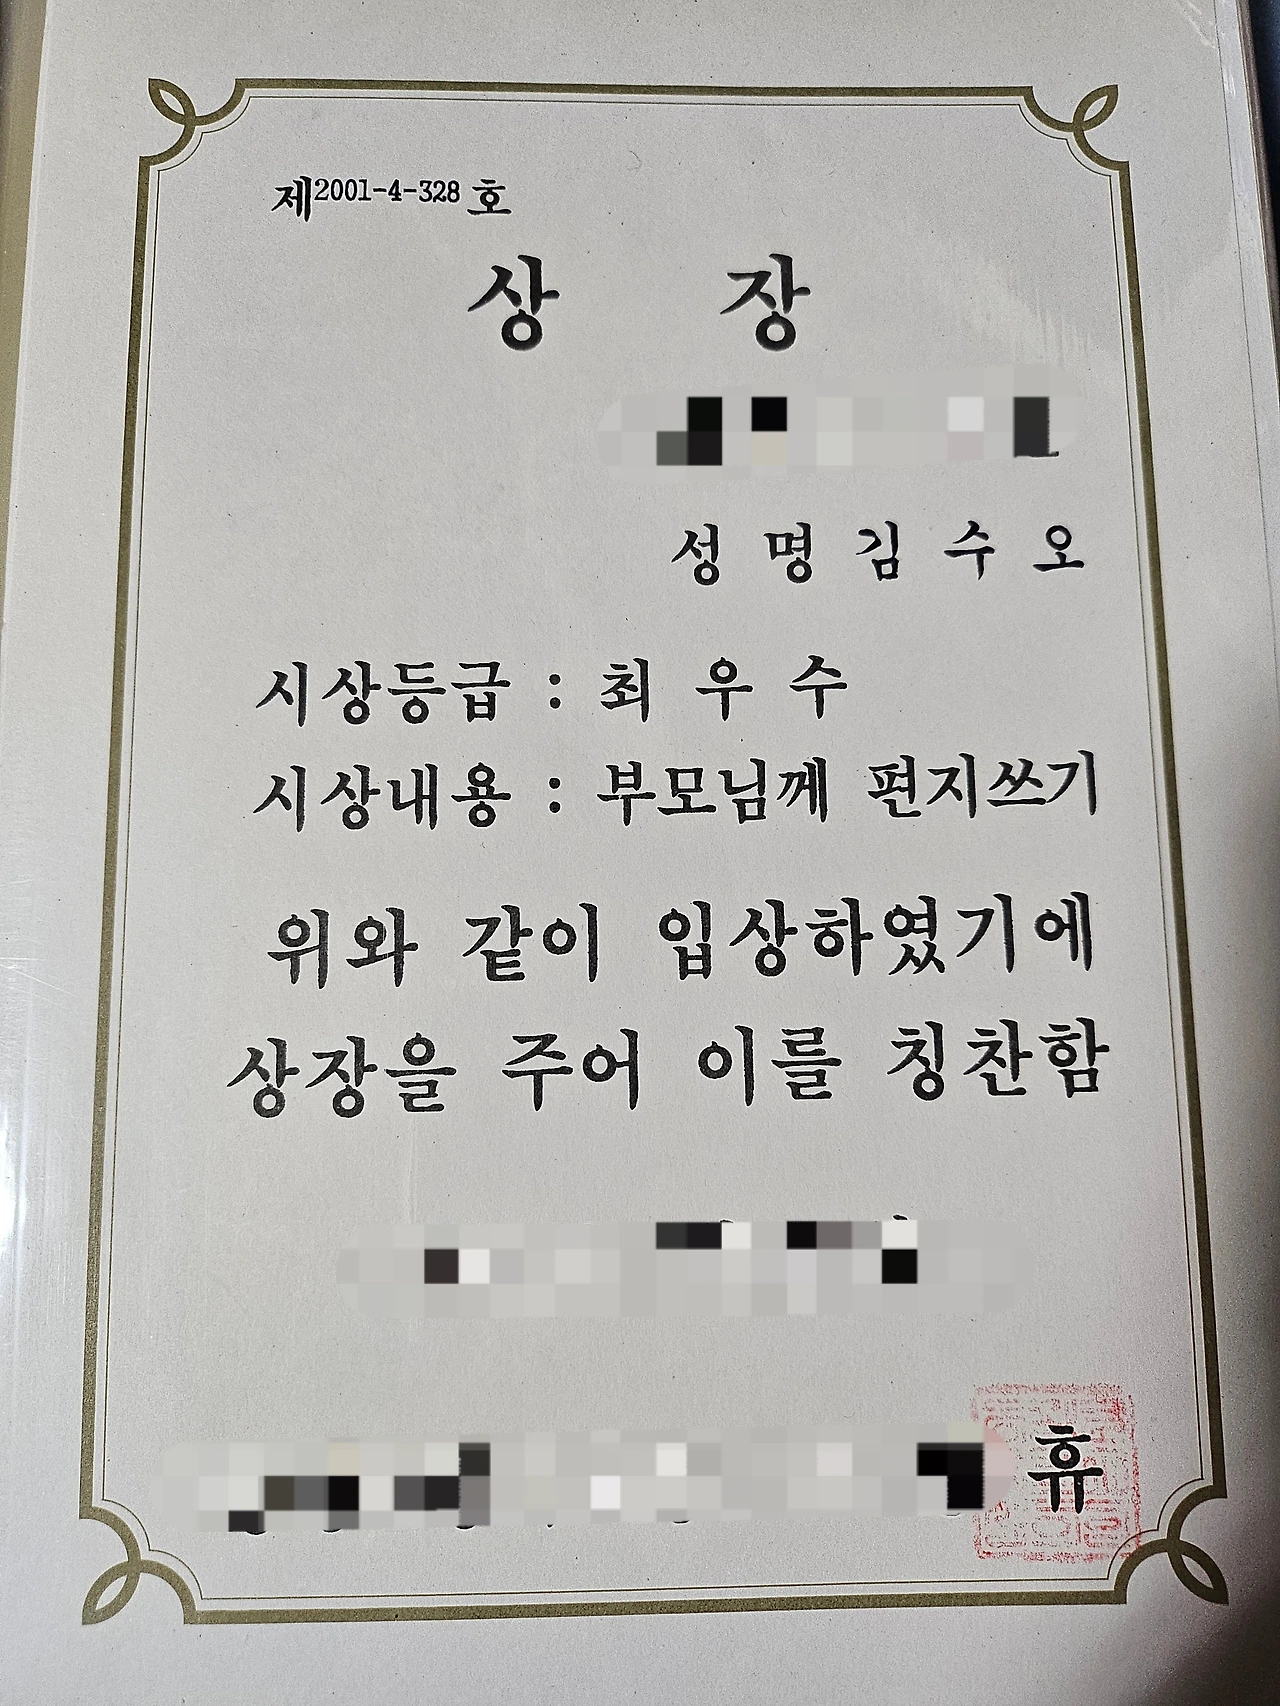 제2001-4-328 호
상 장
성 명 김 수 오
시상등급 : 최 우 수
시상내용 : 부모님께 편지쓰기
위와 같이 입상하였기에
상장을 주어 이를 칭찬함
휴